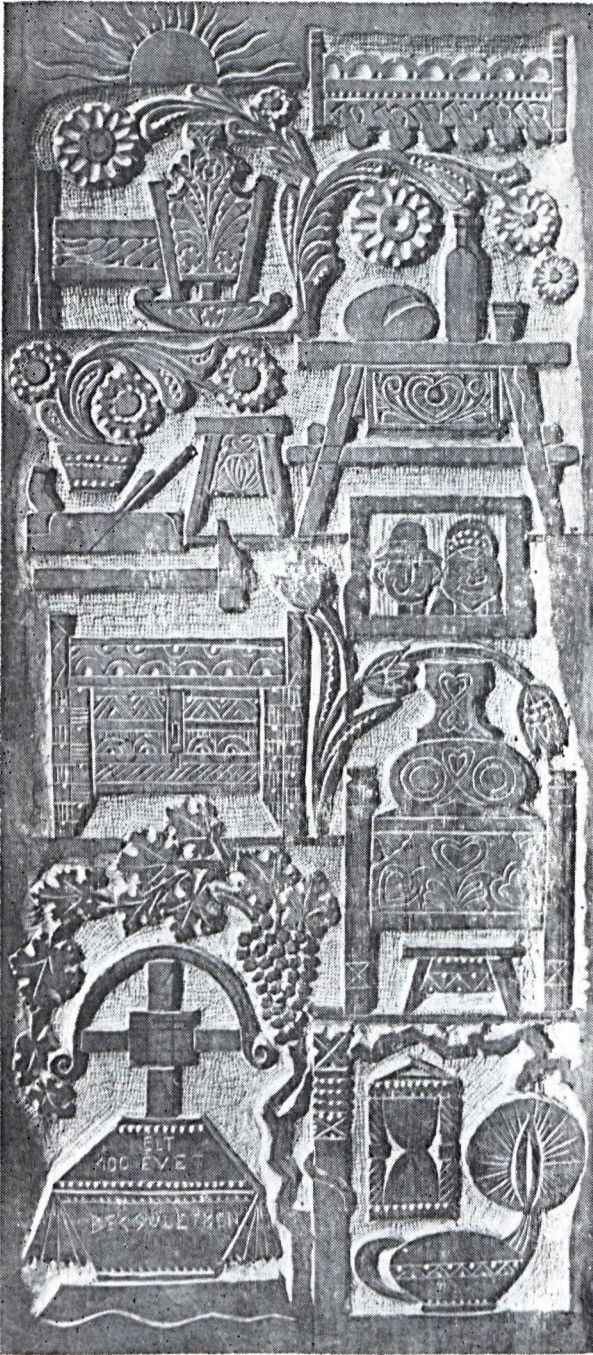 ÉLT
100 ÉVET
BECSÜLETBEN